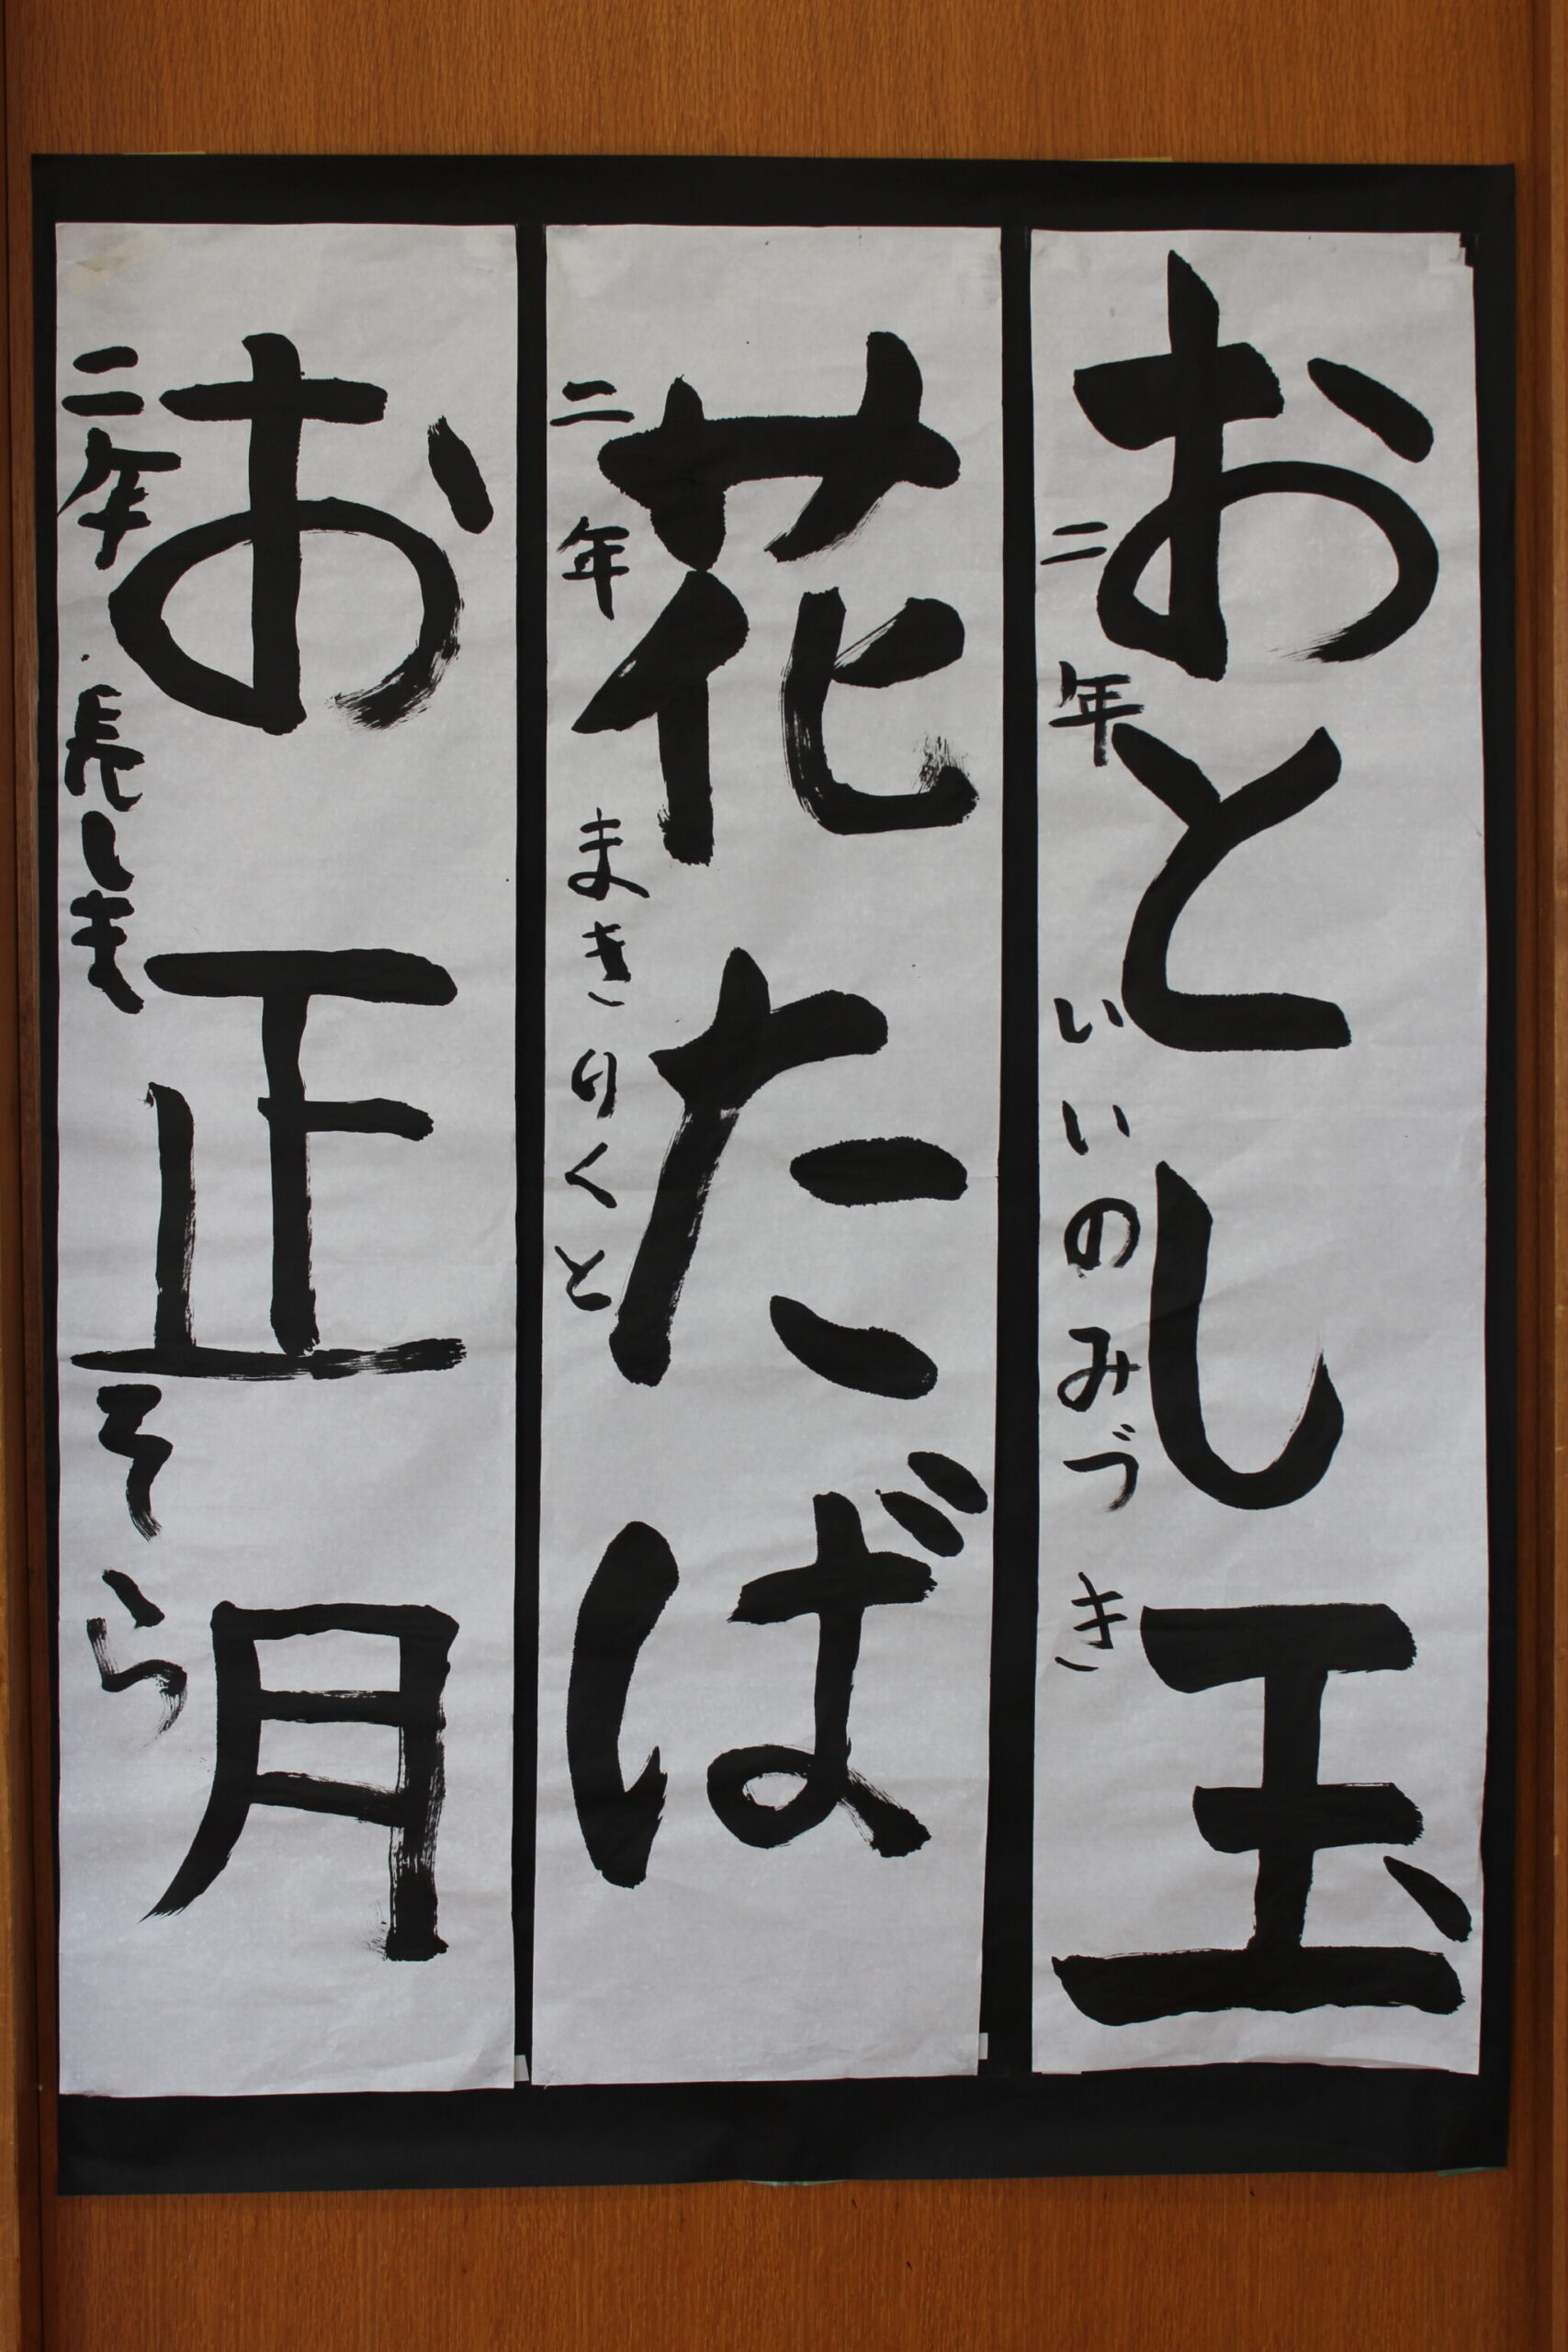 おとし玉
二年 いいのみづき
花たば
二年 まきりくと
お正月
二年 長しま そら